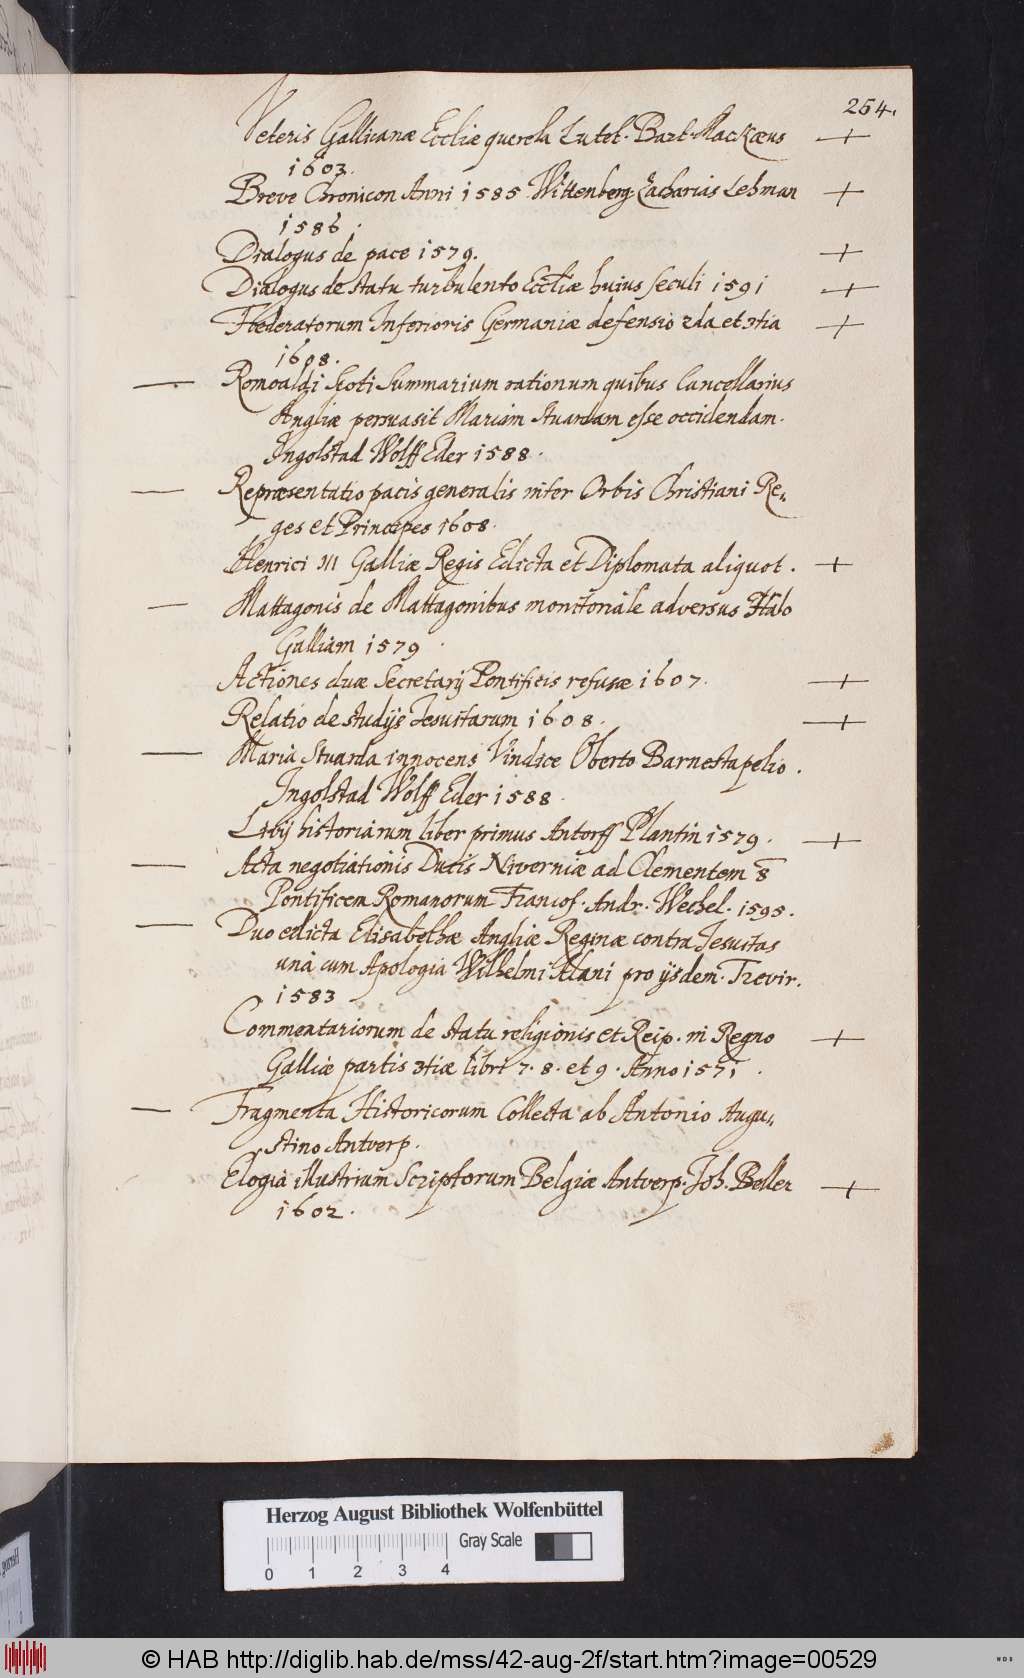 254.
Veteris Gallicanæ Eccliæ querela Lutet. Bart. Mackæus +
1603.
Breve Chronicon Anni 1585 Wittenberg Zacharias Lehman +
1586.
Dialogus de pace 1579. +
Dialogus de statu turbulento Eccliæ huius seculi 1591 +
Fœderatorum Inferioris Germaniæ defensio 2da et 3tia +
1608.
— Romoaldi Scoti Summarium rationum quibus Cancellarius
Angliæ persuasit Mariam Stuardam esse occidendam.
Ingolstad Wolff Eder 1588.
— Repræsentatio pacis generalis inter Orbis Christiani Re-
ges et Principes 1608.
Henrici III Galliæ Regis Edicta et Diplomata aliquot. +
— Mattagonis de Mattagonibus monitoriale adversus Italo
Galliam 1579
Actiones duæ Secretarij Pontificis refusæ 1607. +
Relatio de studijs Jesuitarum 1608. +
— Maria Stuarda innocens Vindice Oberto Barnestapolio.
Ingolstad Wolff Eder 1588.
Livij historiarum liber primus Antorff Plantin 1579. +
— Acta negotiationis Ducis Niverniæ ad Clementem 8
Pontificem Romanorum Francof. Andr. Wechel. 1595.
— Duo edicta Elisabethæ Angliæ Reginæ contra Jesuitas
unà cum Apologia Wilhelmi Alani pro ijsdem. Trevir.
1583
Commentariorum de statu religionis et Reip. in Regno +
Galliæ partis 3tiæ libri 7. 8. et 9. Anno 1571.
— Fragmenta Historicorum Collecta ab Antonio Augu-
stino Antverp.
Elogia illustrium Scriptorum Belgiæ Antverp. Joh. Beller +
1602.
Herzog August Bibliothek Wolfenbüttel
Gray Scale
0 1 2 3 4
© HAB http://diglib.hab.de/mss/42-aug-2f/start.htm?image=00529